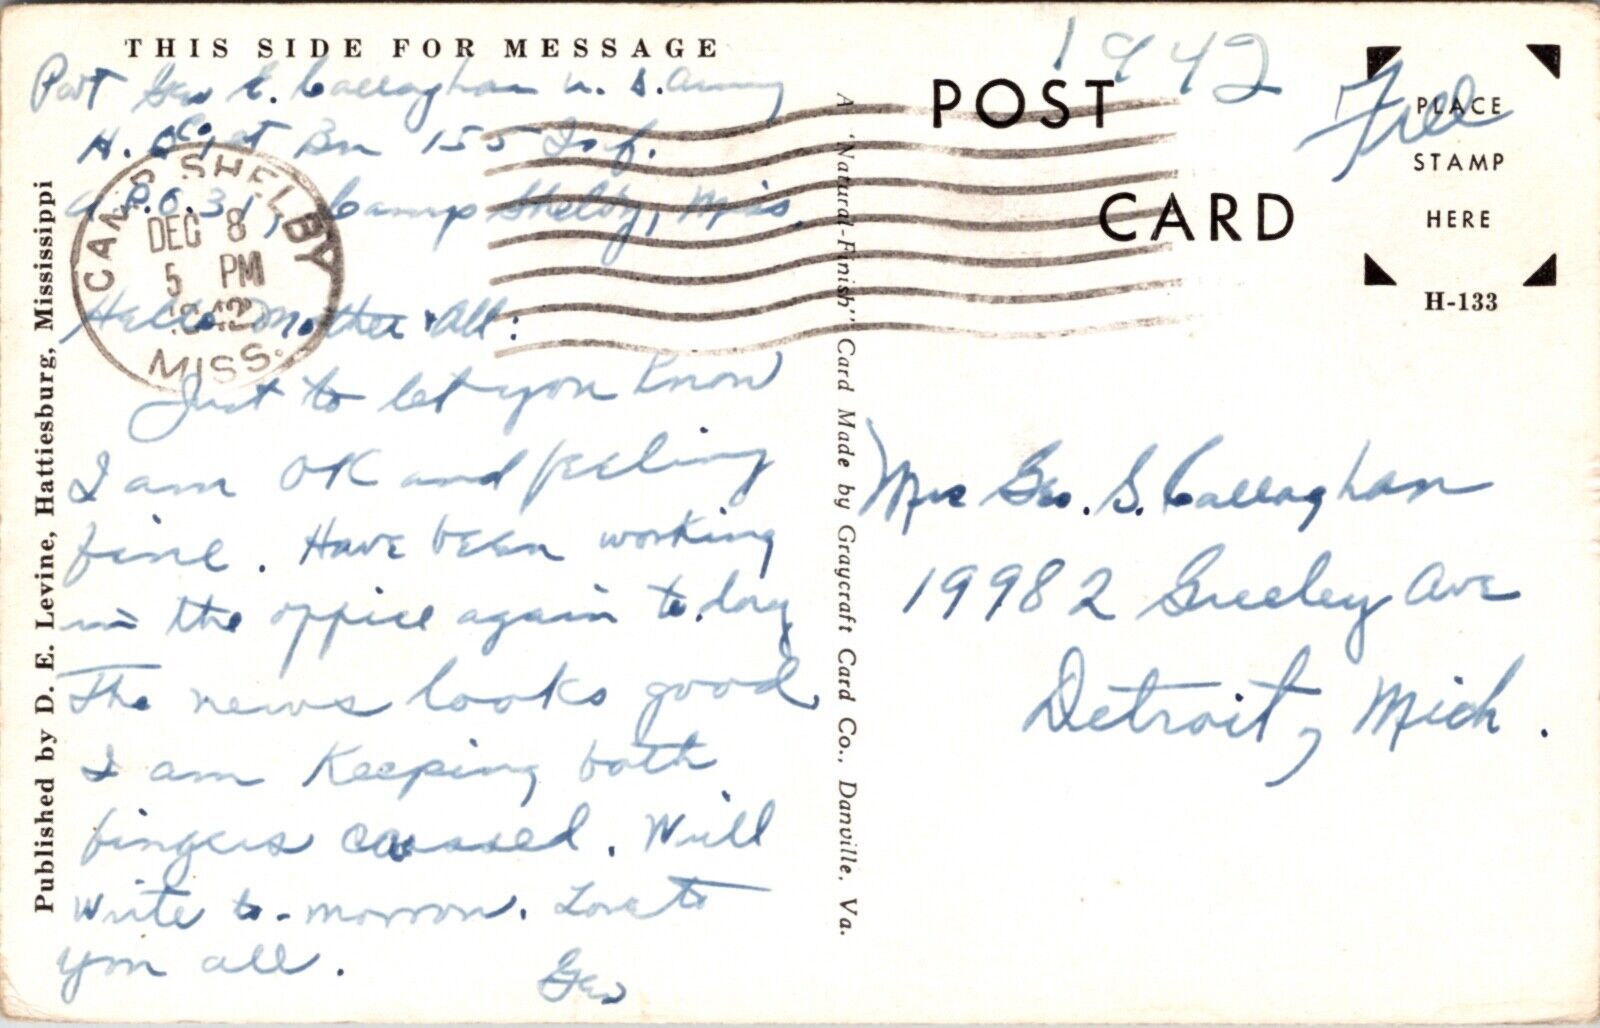 THIS SIDE FOR MESSAGE
Pvt Geo E. Callaghan U. S. Army
H. Q. Co. 1st Bn 155 Inf.
A.P.O. 31, Camp Shelby, Miss.
Hello Mother & All:
Just to let you know
I am OK and feeling
fine. Have been working
in the office again to-day
The news looks good,
I am keeping both
fingers crossed. Will
write to-morrow. Love to
you all.
Geo
CAMP SHELBY
DEC 8
5 PM
1942
MISS.
Published by D. E. Levine, Hattiesburg, Mississippi
A "Natural-Finish" Card Made by Graycraft Card Co., Danville, Va.
1942
POST
CARD
Free
PLACE
STAMP
HERE
H-133
Mrs Geo. S. Callaghan
19982 Greeley Ave
Detroit, Mich.